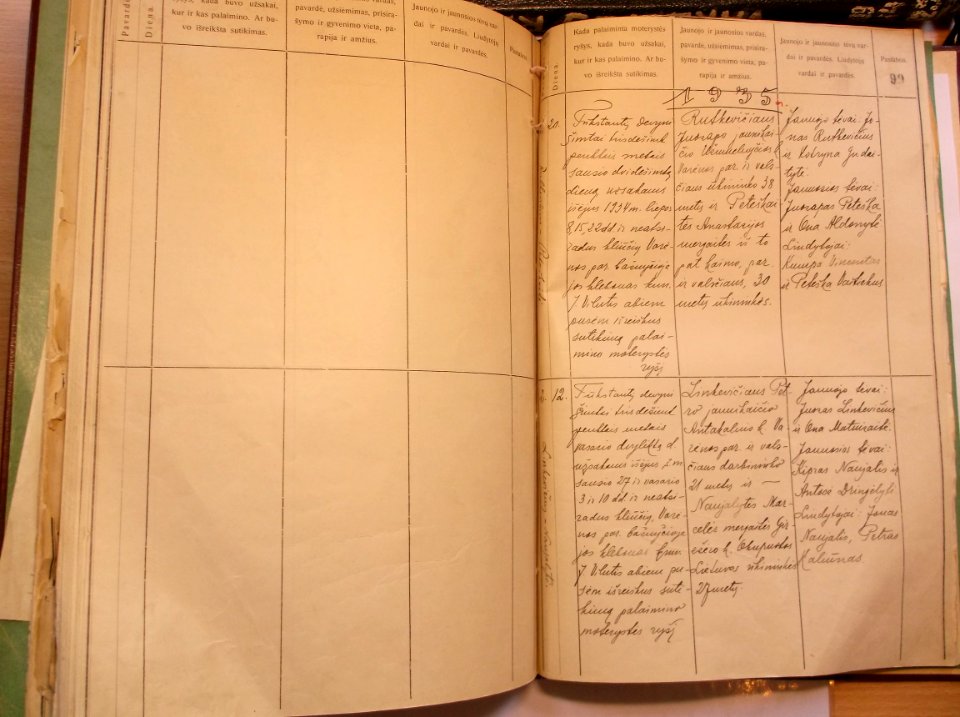 ryšys, kada buvo užsakai,
kur ir kas palaimino. Ar bu-
vo išreikšta sutikimas.
pavardė, užsiėmimas, prisira-
šymo ir gyvenimo vieta, pa-
rapija ir amžius.
Jaunojo ir jaunosios tėvų var-
dai ir pavardės. Liudytojų
vardai ir pavardės.
Pastabos.
Diena.
Kada palaiminta moterystės
ryšys, kada buvo užsakai,
kur ir kas palaimino. Ar bu-
vo išreikšta sutikimas.
Jaunojo ir jaunosios vardai,
pavardė, užsiėmimas, prisira-
šymo ir gyvenimo vieta, pa-
rapija ir amžius.
Jaunojo ir jaunosios tėvų var-
dai ir pavardės. Liudytojų
vardai ir pavardės.
Pastabos.
99
1935 m.
20.
Tūkstantų devyni
šimtai trisdešimt
penktais metais
sausio dvidešimtą
dieną užsakams
išėjus 1934 m. liepos
8, 15, 22 dd. ir neatsi-
radus kliūčių Varė-
nos par. bažnyčioje
jos klebonas kun.
J. Vilutis abiem
pusėm išreiškus
sutikimą palai-
mino moterystės
ryšį
Rutkevičiaus
Juozapo jaunikai-
čio
Varėnos par. ir vals-
čiaus ūkininko 38
metų ir Peteškai-
tės Anastazijos
mergaitės iš to
pat kaimo, par.
ir valsčiaus, 30
metų ūkininkės.
Jaunojo tėvai: Jo-
nas Rutkevičius
ir Kotryna
Jaunosios tėvai:
Juozapas Peteška
ir Ona
Liudytojai:
Kumpa Vincentas
ir Peteška
12.
Tūkstantų devyni
šimtai trisdešimt
penktais metais
vasario dvyliktą d.
užsakams išėjus š.m.
sausio 27 ir vasario
3 ir 10 dd. ir neatsi-
radus kliūčių, Varė-
nos par. bažnyčioje
jos klebonas kun.
J. Vilutis abiem pu-
sėm išreiškus suti-
kimą palaimino
moterystės ryšį
Linkevičiaus Pet-
ro jaunikaičio
Antakalnio k. Va-
rėnos par. ir vals-
čiaus darbininko
21 metų ir —
Naujalytės Mar-
celės mergaitės
k. Okupuotos
Lietuvos ūkininkės
27 metų
Jaunojo tėvai:
Juozas Linkevičius
ir Ona
Jaunosios tėvai:
Kipras Naujalis ir
Antosė
Liudytojai: Jonas
Naujalis, Petras